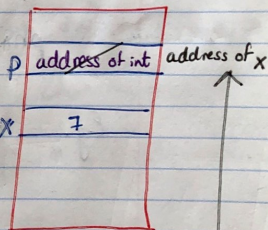 p address of int address of x
x 7